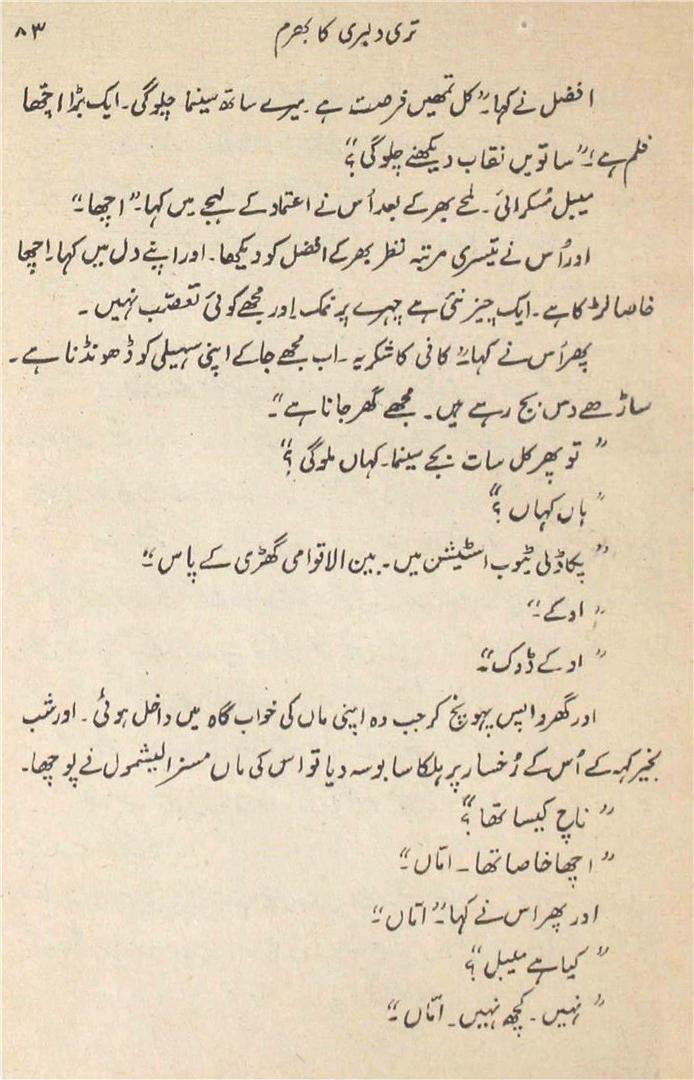 تری دلبری کا بھرم ۸۳
افضل نے کہا۔" کل تمھیں فرصت ہے۔ میرے ساتھ سینما چلوگی۔ ایک بڑا اچھا
فلم ہے!" "ساتویں نقاب دیکھنے چلوگی؟"
میبل مُسکرائی۔ لمحے بھر کے بعد اُس نے اعتماد کے لہجے میں کہا۔" اچھا۔"
اور اُس نے تیسری مرتبہ نظر بھر کے افضل کو دیکھا۔ اور اپنے دل میں کہا۔ اچھا
خاصا لڑکا ہے۔ ایک چیز نئی ہے چہرے پر نمک اور مجھے کوئی تعصّب نہیں۔
پھر اُس نے کہا۔" کافی کا شکریہ۔ اب مجھے جا کے اپنی سہیلی کو ڈھونڈنا ہے۔
ساڑھے دس بج رہے ہیں۔ مجھے گھر جانا ہے"۔
" تو پھر کل سات بجے سینما۔ کہاں ملوگی؟"
"ہاں کہاں؟"
" پکاڈلی ٹیوب اسٹیشن میں۔ بین الاقوامی گھڑی کے پاس۔"
" اوکے۔"
" اوکے ڈوک"۔
اور گھر واپس پہونچ کر جب وہ اپنی ماں کی خواب گاہ میں داخل ہوئی۔ اور شب
بخیر کہہ کے اُس کے رُخسار پر ہلکا سا بوسہ دیا تو اس کی ماں مسز الیشمول نے پوچھا۔
" ناچ کیسا تھا؟"
" اچھا خاصا تھا۔ امّاں۔"
اور پھر اس نے کہا۔" امّاں۔"
" کیا ہے میبل؟"
" نہیں۔ کچھ نہیں۔ امّاں۔"